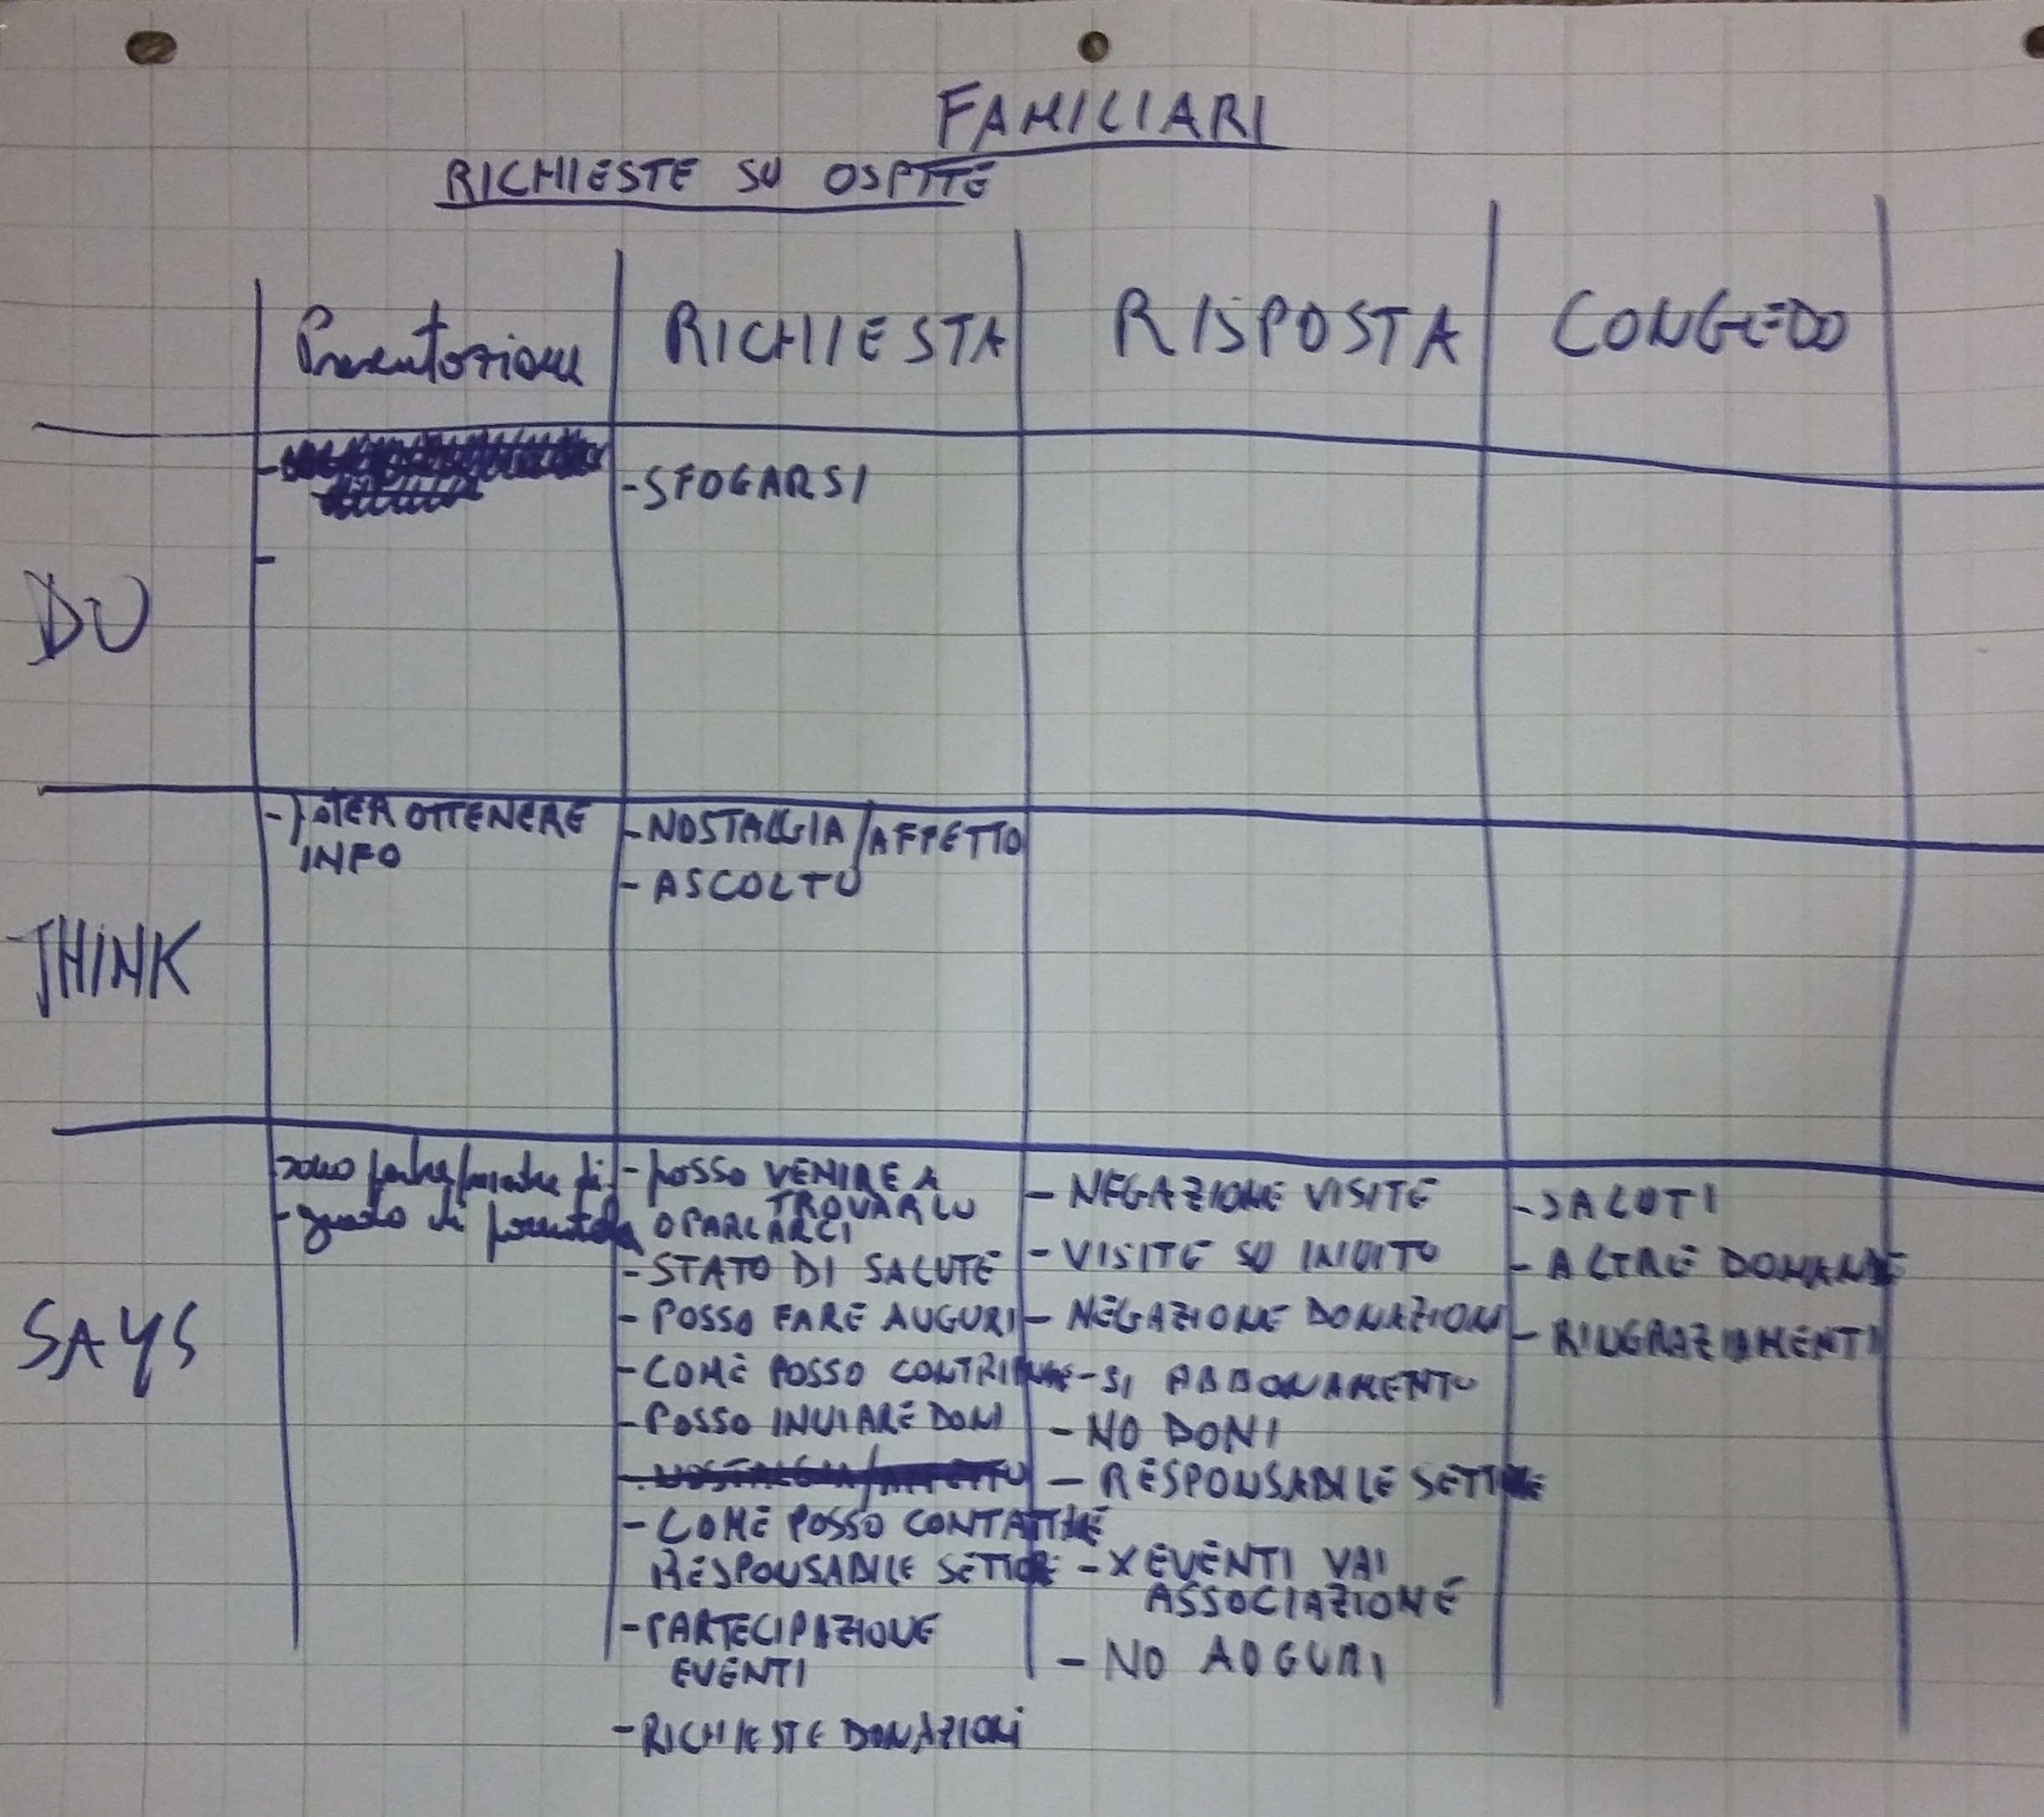 FAMILIARI
RICHIESTE SU OSPITE
Presentazione
RICHIESTA
RISPOSTA
CONGEDO
DO
- SFOGARSI
THINK
- poter OTTENERE
INFO
- NOSTALGIA/AFFETTO
- ASCOLTO
SAYS
- sono padre/madre di
- grado di parentela
- posso VENIRE A
TROVARLO
O PARLARCI
- STATO DI SALUTE
- POSSO FARE AUGURI
- COME POSSO CONTRIBUIRE
- POSSO INVIARE DONI
- NOSTALGIA/AFFETTO
- COME POSSO CONTATTARE
RESPONSABILE SETTORE
- PARTECIPAZIONE
EVENTI
- RICHIESTE DONAZIONI
- NEGAZIONE VISITE
- VISITE SU INVITO
- NEGAZIONE DONAZIONI
- SI ABBONAMENTO
- NO DONI
- RESPONSABILE SETTORE
- X EVENTI VAI
ASSOCIAZIONE
- NO AUGURI
- SALUTI
- ALTRE DOMANDE
- RINGRAZIAMENTI